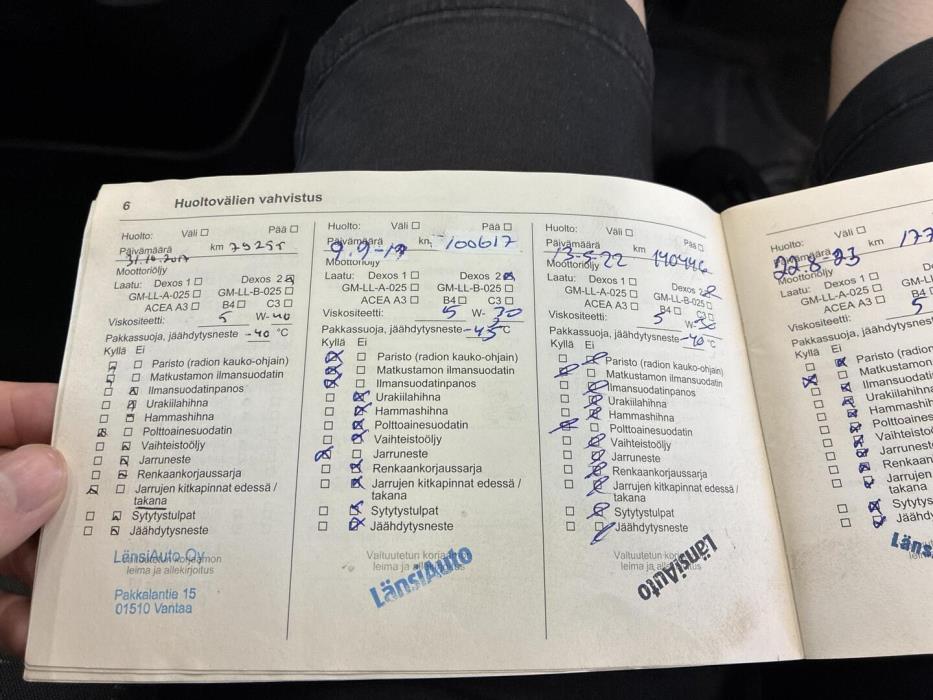 6 Huoltovälien vahvistus
Huolto: Väli Pää
Päivämäärä km 79255
31.10.2017
Moottoriöljy
Laatu: Dexos 1 Dexos 2
GM-LL-A-025 GM-LL-B-025
ACEA A3 B4 C3
Viskositeetti: 5 W-40
Pakkassuoja, jäähdytysneste -40 °C
Kyllä Ei
Paristo (radion kauko-ohjain)
Matkustamon ilmansuodatin
Ilmansuodatinpanos
Urakiilahihna
Hammashihna
Polttoainesuodatin
Vaihteistoöljy
Jarruneste
Renkaankorjaussarja
Jarrujen kitkapinnat edessä /
takana
Sytytystulpat
Jäähdytysneste
LänsiAuto Oy
Valtuutetun korjaamon
leima ja allekirjoitus
Pakkalantie 15
01510 Vantaa
Huolto: Väli Pää
Päivämäärä km 100617
9.9-19
Moottoriöljy
Laatu: Dexos 1 Dexos 2
GM-LL-A-025 GM-LL-B-025
ACEA A3 B4 C3
Viskositeetti: 5 W-30
Pakkassuoja, jäähdytysneste -45 °C
Kyllä Ei
Paristo (radion kauko-ohjain)
Matkustamon ilmansuodatin
Ilmansuodatinpanos
Urakiilahihna
Hammashihna
Polttoainesuodatin
Vaihteistoöljy
Jarruneste
Renkaankorjaussarja
Jarrujen kitkapinnat edessä /
takana
Sytytystulpat
Jäähdytysneste
Valtuutetun korjaamon
leima ja allekirjoitus
LänsiAuto
Huolto: Väli Pää
Päivämäärä 140446
13-5-22
Moottoriöljy
Laatu: Dexos 1 Dexos 2
GM-LL-A-025 GM-LL-B-025
ACEA A3 B4 C3
Viskositeetti: 5 W-30
Pakkassuoja, jäähdytysneste -40 °C
Kyllä Ei
Paristo (radion kauko-ohjain)
Matkustamon ilmansuodatin
Ilmansuodatinpanos
Urakiilahihna
Hammashihna
Polttoainesuodatin
Vaihteistoöljy
Jarruneste
Renkaankorjaussarja
Jarrujen kitkapinnat edessä /
takana
Sytytystulpat
Jäähdytysneste
Valtuutetun korjaamon
leima ja allekirjoitus
LänsiAuto
Huolto: Väli
Päivämäärä km 177
22.8-23
Moottoriöljy
Laatu: Dexos 1
GM-LL-A-025 GM-LL
ACEA A3 B4
Viskositeetti: 5
Pakkassuoja, jäähdytysneste
Kyllä Ei
Paristo (radion
Matkustamon
Ilmansuodatin
Urakiilahihna
Hammashihna
Polttoaines
Vaihteistoö
Jarruneste
Renkaan
Jarrujen
takana
Sytytys
Jäähd
Läns